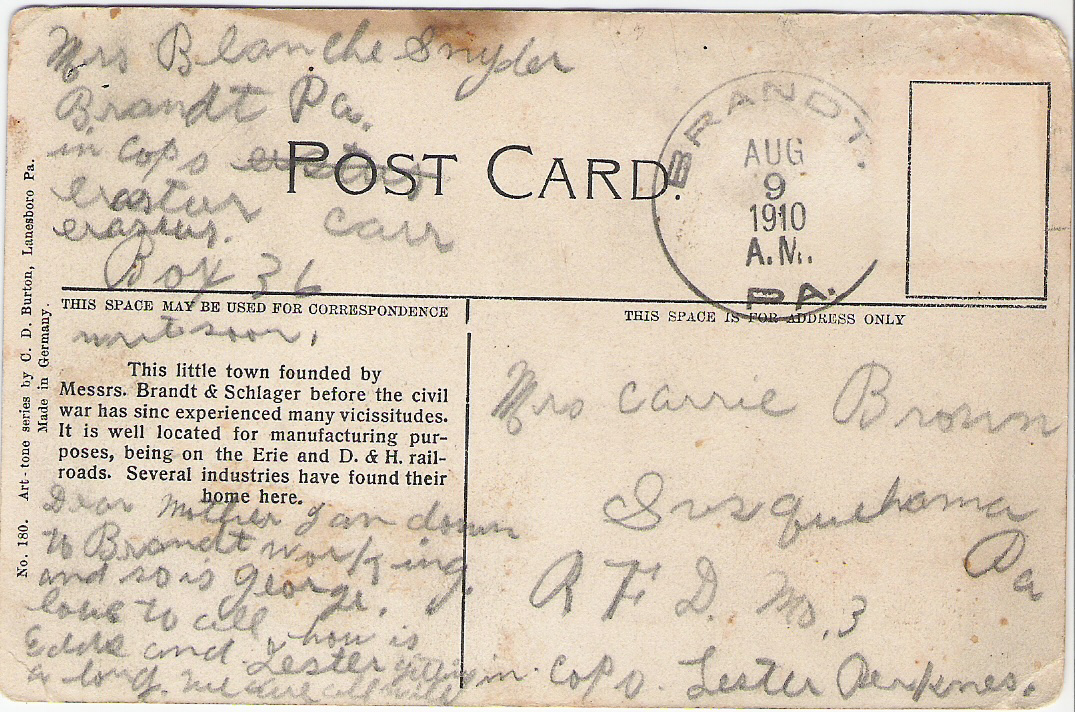 Mrs Blanche Snyder
Brandt Pa.
in Cops
erastur carr
erastus.
Box 36
POST CARD.
BRANDT.
AUG
9
1910
A.M.
PA.
THIS SPACE MAY BE USED FOR CORRESPONDENCE
THIS SPACE IS FOR ADDRESS ONLY
write soon.
This little town founded by
Messrs. Brandt & Schlager before the civil
war has sinc experienced many vicissitudes.
It is well located for manufacturing pur-
poses, being on the Erie and D. & H. rail-
roads. Several industries have found their
home here.
Dear Mother I an down
to Brandt working.
and so is George.
love to all, how is
Edde and Lester getting
a long. we are all well
Mrs Carrie Brown
Susquehama
Pa
R F D. No. 3
in Cops. Lester Perkines.
No. 180. Art-tone series by C. D. Burton, Lanesboro Pa.
Made in Germany.